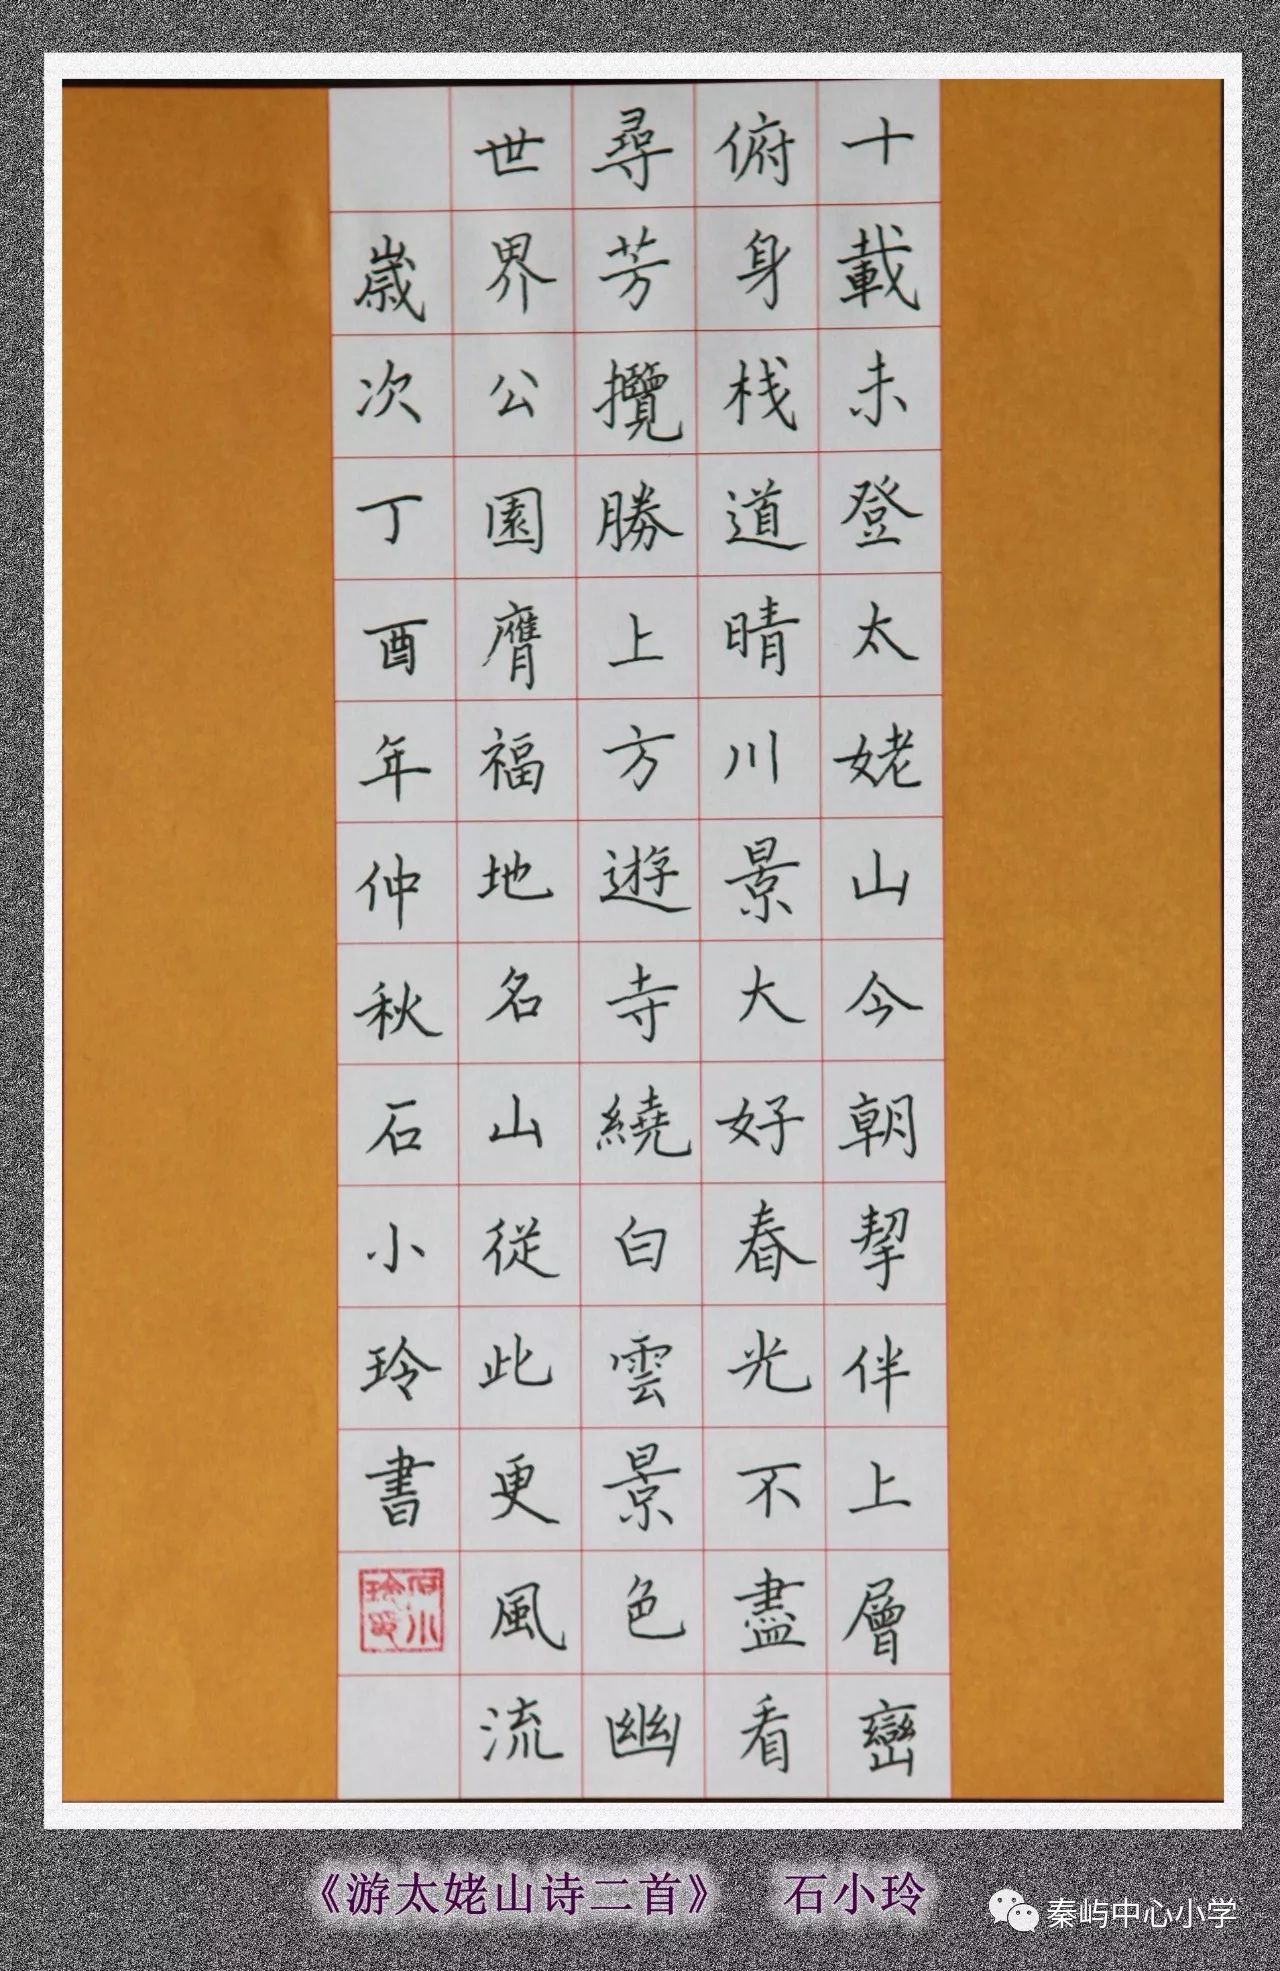 十載未登太姥山今朝挈伴上層巒
俯身栈道晴川景大好春光不盡看
尋芳攬勝上方遊寺繞白雲景色幽
世界公園膺福地名山從此更風流
歲次丁酉年仲秋石小玲書
石小玲印
《游太姥山诗二首》 石小玲
秦屿中心小学